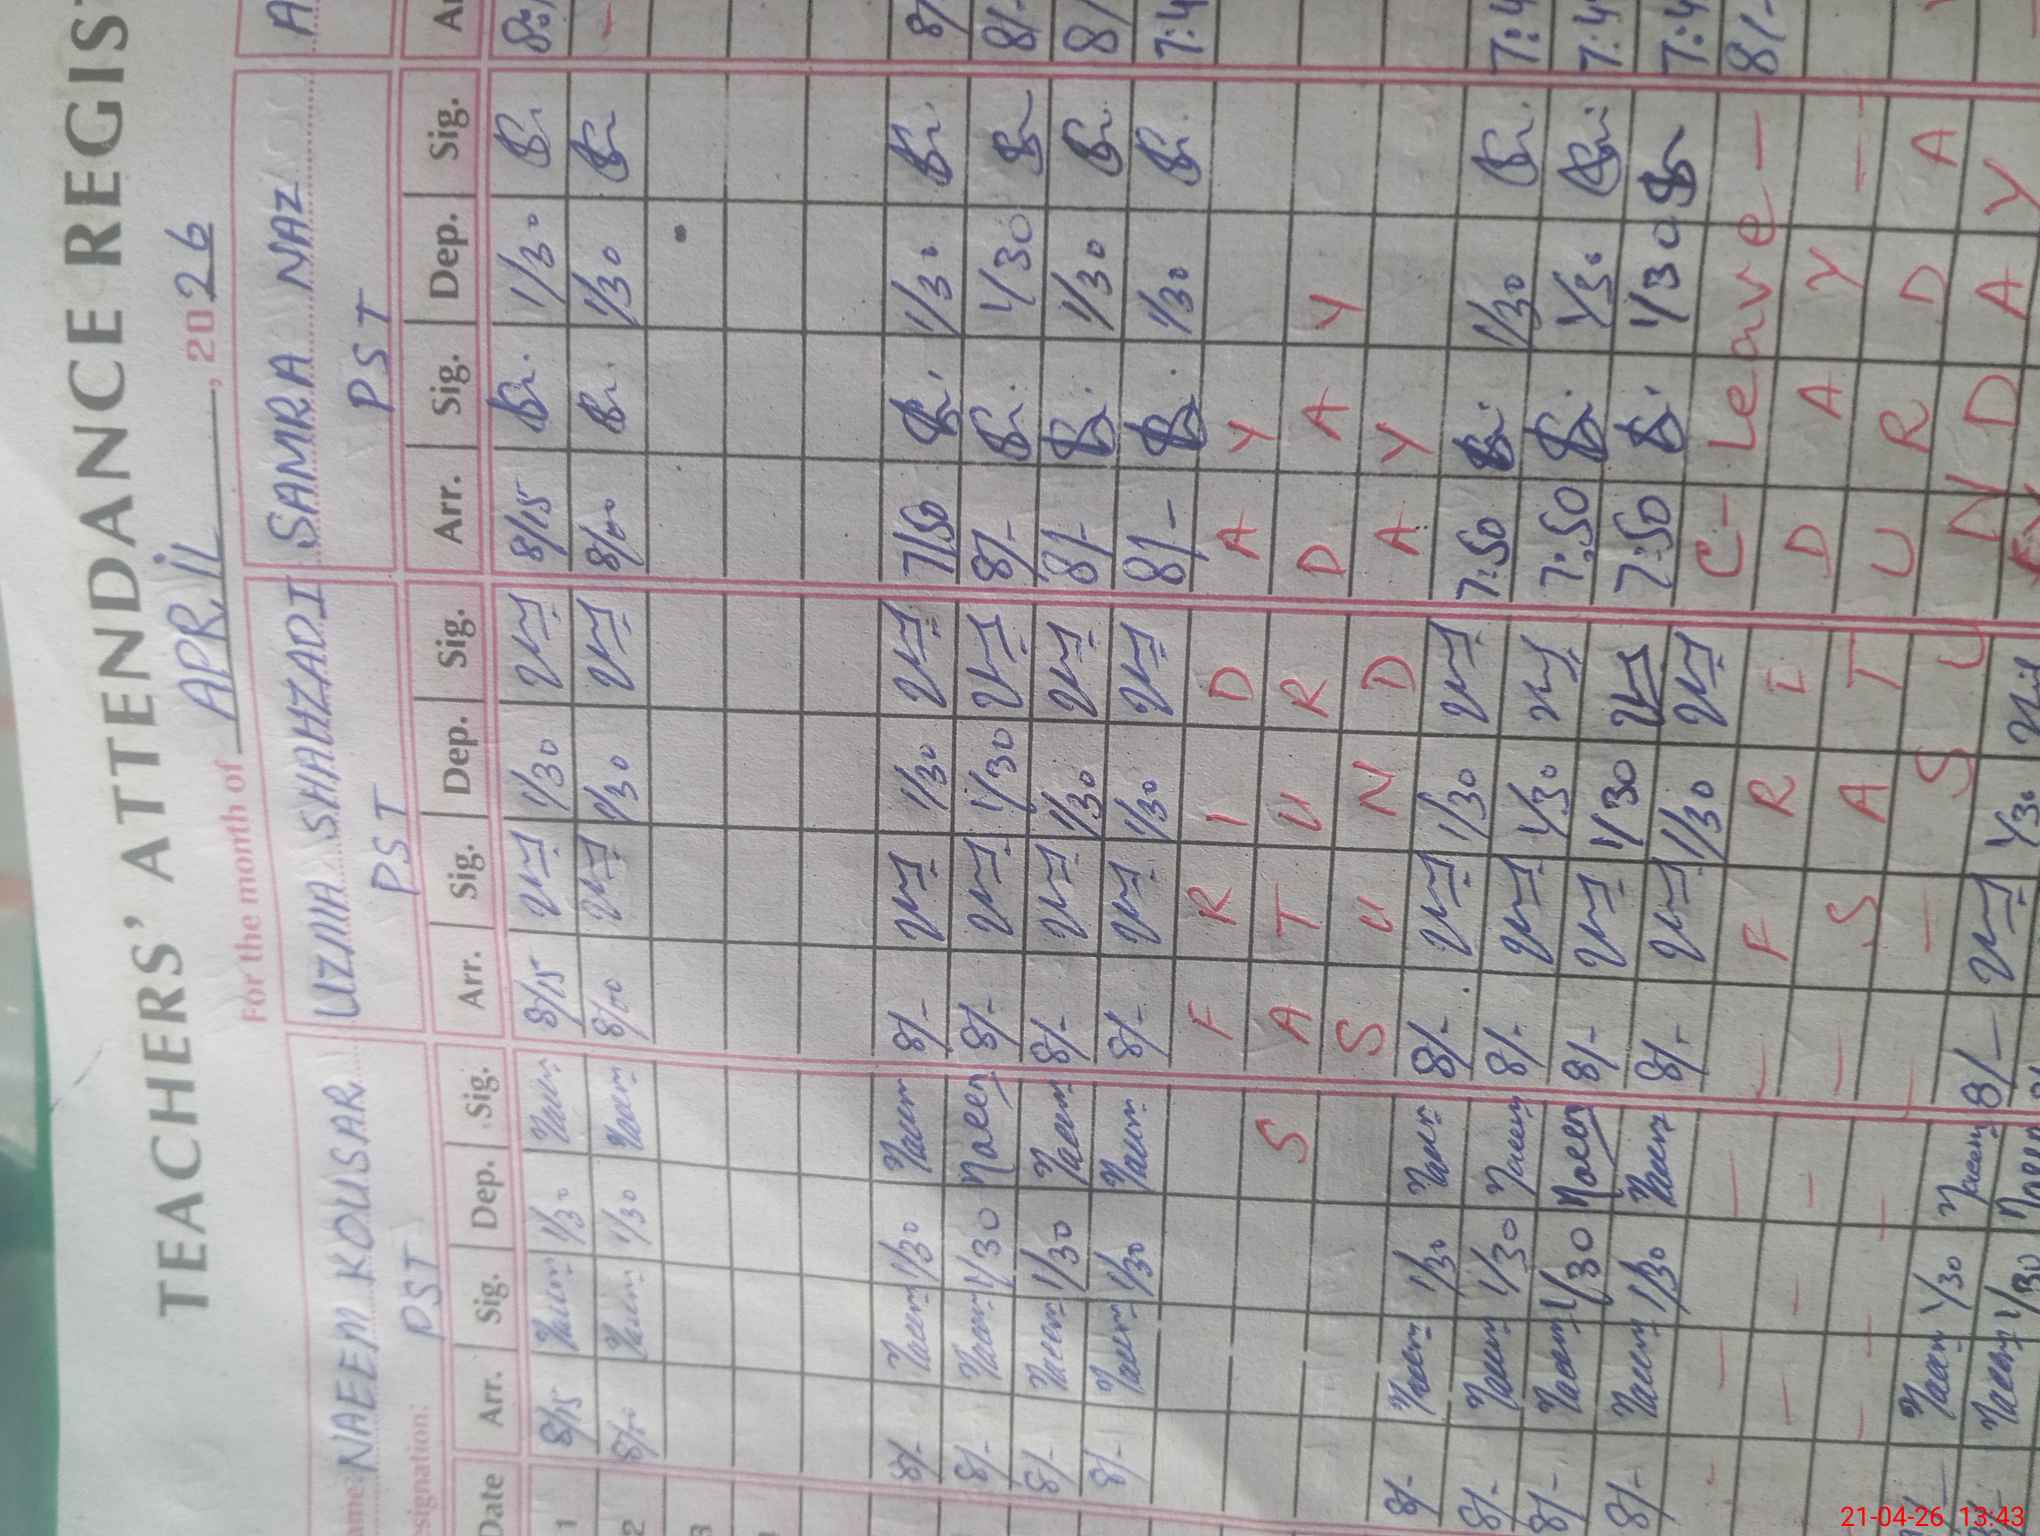 TEACHERS' ATTENDANCE REGIS
For the month of APRIL, 2026
NAEEM KOUSAR UZMA SHAHZADI SAMRA NAZ
signation: PST PST PST
Date Arr. Sig. Dep. Sig. Arr. Sig. Dep. Sig. Arr. Sig. Dep. Sig.
1 8/15 Naeem 1/30 Naeem 8/15 1/30 8/15 1/30
2 8/00 Naeem 1/30 Naeem 8/00 1/30 8/00 1/30
3
8/- Naeem 1/30 Naeem 8/- 1/30 7/50 1/30
8/- Naeem 1/30 Naeem 8/- 1/30 8/- 1/30
8/- Naeem 1/30 Naeem 8/- 1/30 8/- 1/30
8/- Naeem 1/30 Naeem 8/- 1/30 8/- 1/30 7:4
F R I D A Y
S A T U R D A Y
S U N D A Y
8/- Naeem 1/30 Naeem 8/- 1/30 7:50 1/30 7:4
8/- Naeem 1/30 Naeem 8/- 1/30 7:50 1/30 7:4
8/- Naeem 1/30 Naeem 8/- 1/30 7:50 1/30 7:4
8/- Naeem 1/30 Naeem 8/- 1/30 C- Leave - 8/-
F R I D A Y
S A T U R D A
S U N D A Y
Naeem 1/30 Naeem 8/- 1/30
Naeem 1/30
21-04-26 13:43